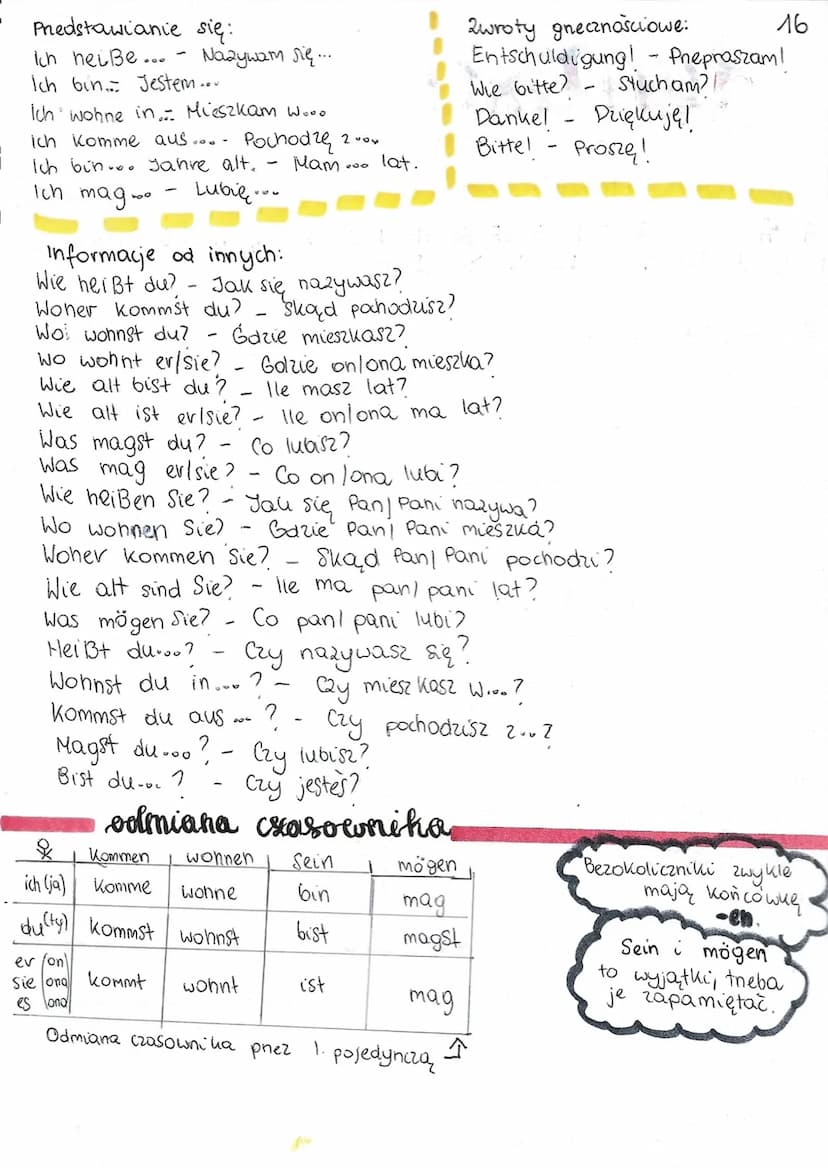 Przedstawianie się:
Ich heiße ... - Nazywam się ...
Ich bin... - Jestem ...
Ich wohne in... - Mieszkam w...
ich komme aus .... - Pochodzę z ....
Ich bin .... Jahre alt. - Mam .... lat.
Ich mag ... - Lubię ....
Zwroty grzecznościowe:
16
Entschuldigung! - Przepraszam!
Wie bitte? - Słucham?!
Danke! - Dziękuję!
Bitte! - Proszę!
Informacje od innych:
Wie heißt du? - Jak się nazywasz?
Woher kommst du? - Skąd pochodzisz?
Wo wohnst du? - Gdzie mieszkasz?
Wo wohnt er/sie? - Gdzie on/ona mieszka?
Wie alt bist du? - Ile masz lat?
Wie alt ist er/sie? - Ile on/ona ma lat?
Was magst du? - Co lubisz?
Was mag er/sie? - Co on/ona lubi?
Wie heißen Sie? - Jak się Pan/Pani nazywa?
Wo wohnen Sie? - Gdzie Pan/Pani mieszka?
Woher kommen Sie? - Skąd Pan/Pani pochodzi?
Wie alt sind Sie? - Ile ma pan/pani lat?
Was mögen Sie? - Co pan/pani lubi?
Heißt du....? - Czy nazywasz się?
Wohnst du in....? - Czy mieszkasz w....?
Kommst du aus ...? - Czy pochodzisz z...?
Magst du....? - Czy lubisz?
Bist du....? - Czy jesteś?
odmiana czasownika
kommen wohnen sein mögen
ich (ja) komme wohne bin mag
du (ty) kommst wohnst bist magst
er (on)
sie (ona) kommt wohnt ist mag
es (ono)
Odmiana czasownika przez l. pojedynczą ↑
Bezokoliczniki zwykle
mają końcówkę
-en.
Sein i mögen
to wyjątki, trzeba
je zapamiętać.